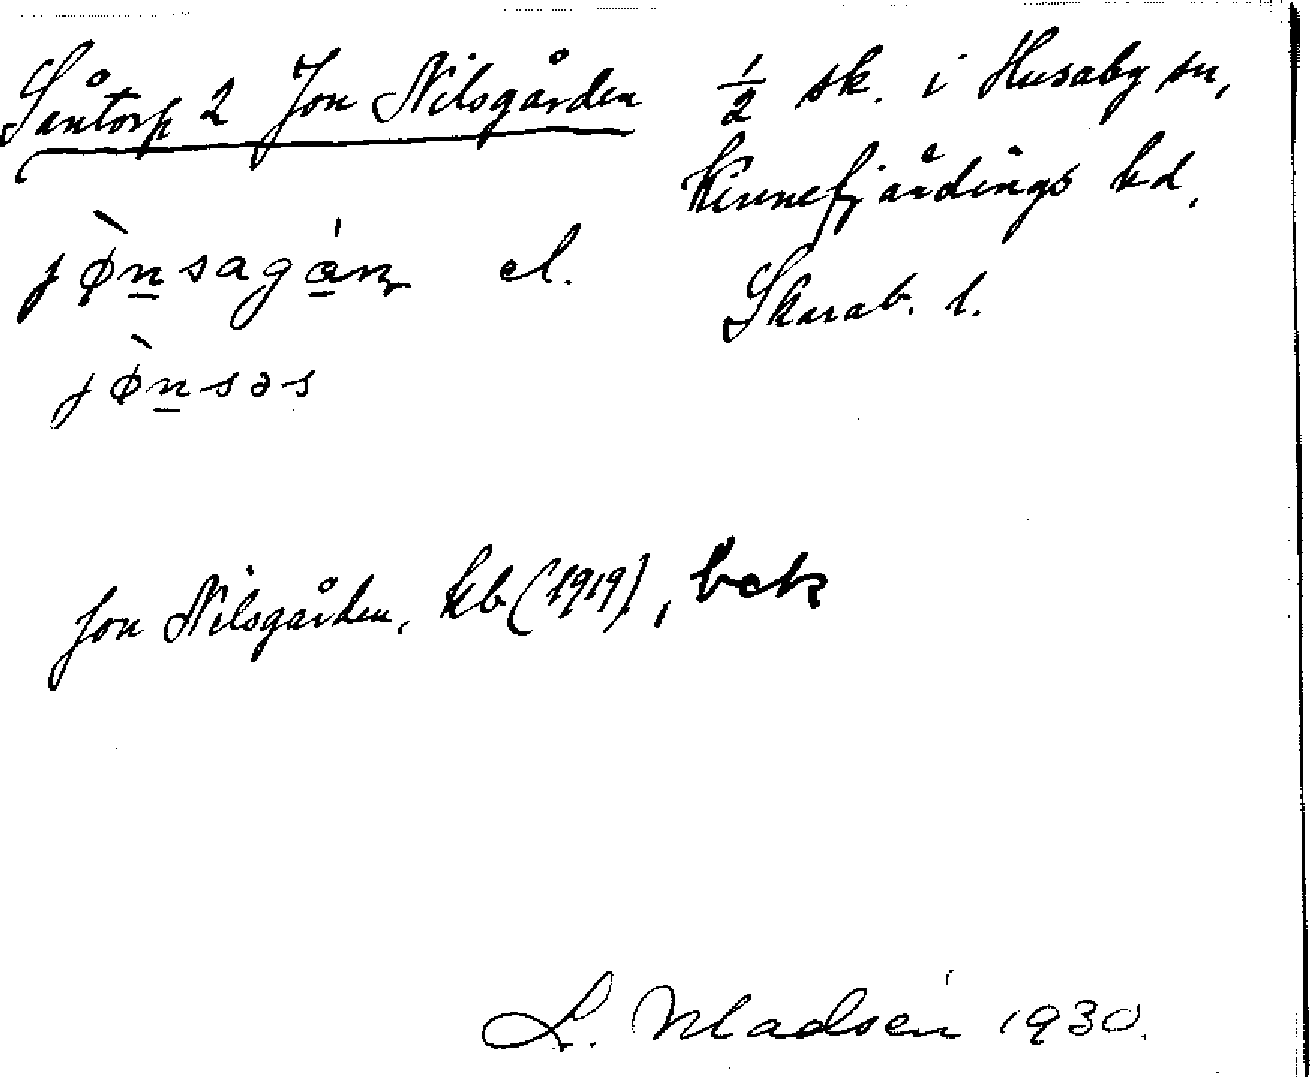 Såntorp 2 Jon Nilsgården
½ sk. i Husaby sn,
Kinnefjärdings hd,
Skarab. l.
jø̀n̠sagá̠ɳ el.
jø̀n̠səs
Jon Nilsgården, kb (1919), bek
L. Madsén 1930.